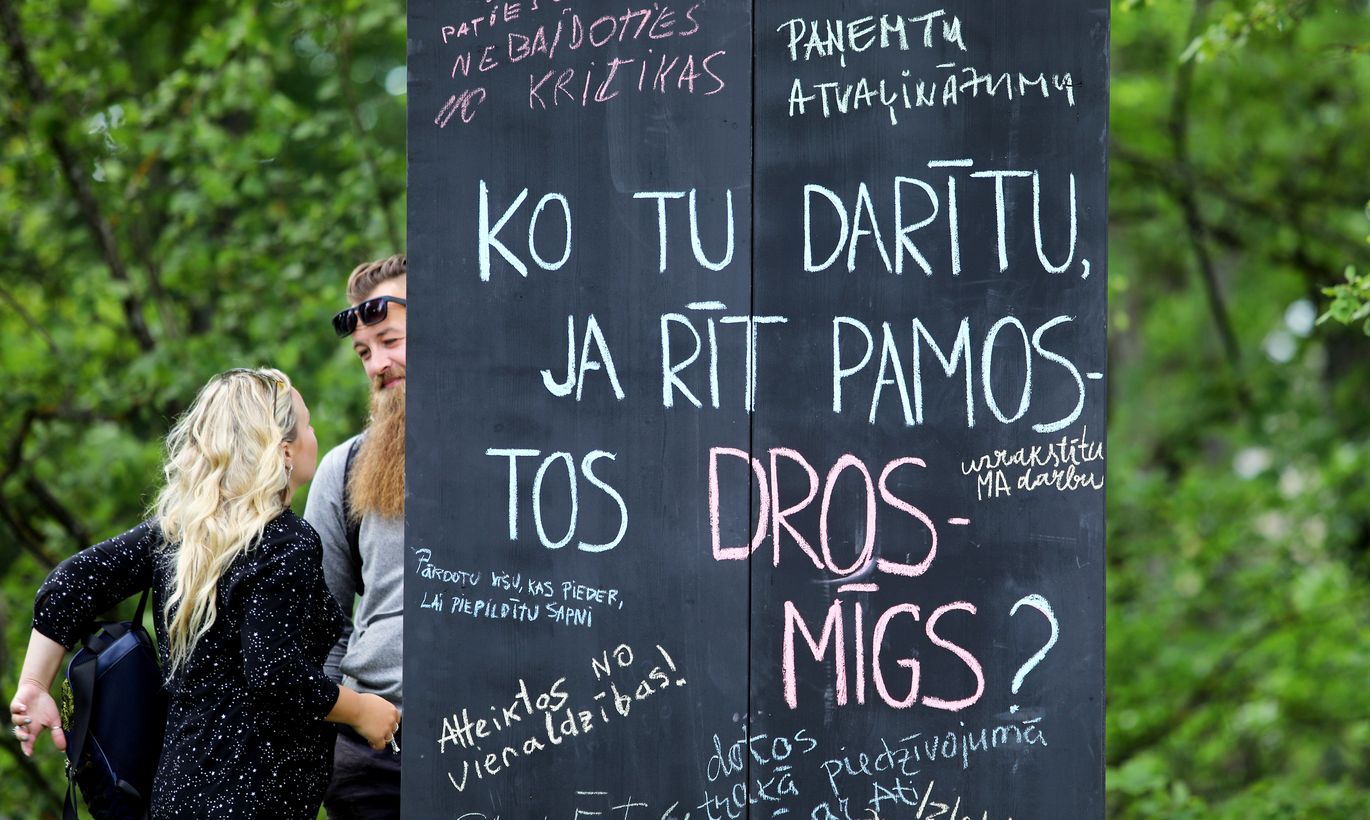 NEBAIDOTIES
KRITIKAS
PAŅEMTU
ATVAĻINĀJUMU
KO TU DARĪTU,
JA RĪT PAMOS-
TOS DROS-
MĪGS?
uzrakstītu
MA darbu
PĀRDOTU VISU, KAS PIEDER,
LAI PIEPILDĪTU SAPNI
Atteiktos NO
vienaldzības!
dotos
trakā piedzīvojumā
ar